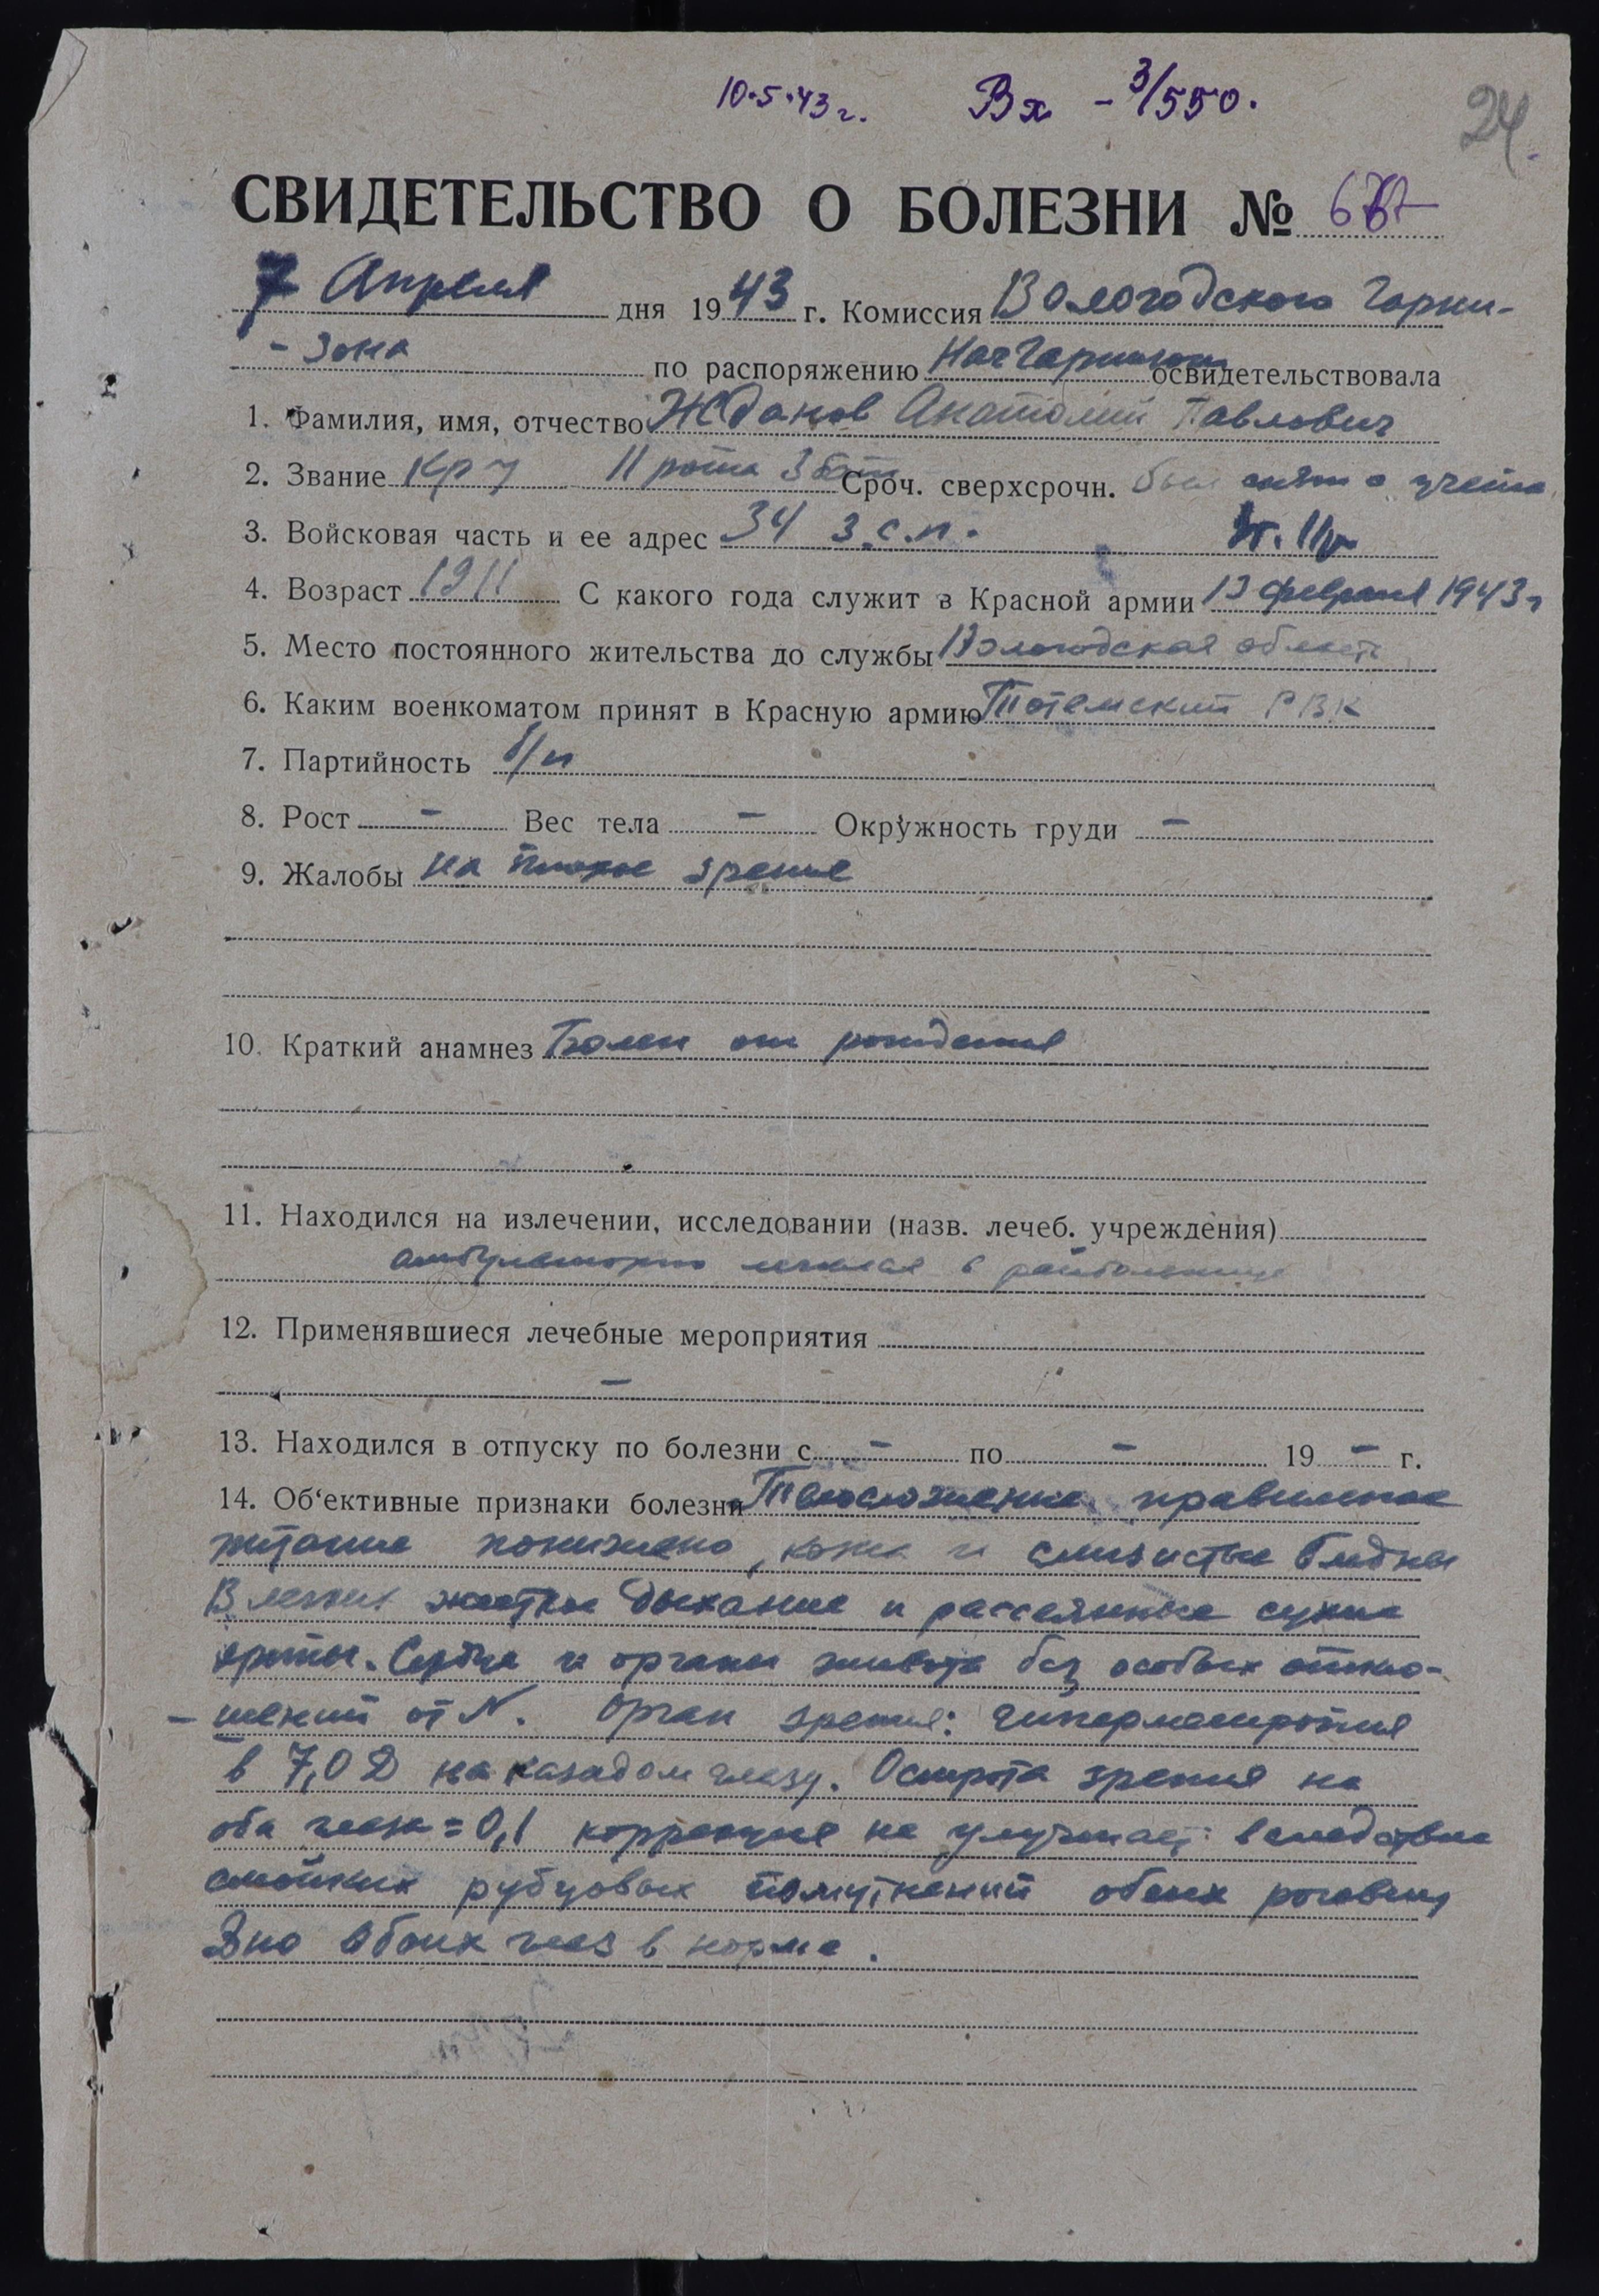 10.5.43 г. Вх - 3/550.
24.
СВИДЕТЕЛЬСТВО О БОЛЕЗНИ №
7 Апреля дня 1943 г. Комиссия Вологодского Гарни-
- зона по распоряжению НачГарнизона освидетельствовала
1. Фамилия, имя, отчество Жданов Анатолий Павлович
2. Звание кр-ц 11 рота 3 бат Сроч. сверхсрочн. был снят с учета
3. Войсковая часть и ее адрес 34 з.с.п.
4. Возраст 1911 С какого года служит в Красной армии 13 февраля 1943 г
5. Место постоянного жительства до службы Вологодская область
6. Каким военкоматом принят в Красную армию Тотемский РВК
7. Партийность б/п
8. Рост - Вес тела - Окружность груди -
9. Жалобы на плохое зрение
10. Краткий анамнез Болен от рождения
11. Находился на излечении, исследовании (назв. лечеб. учреждения)
амбулаторно лечился в райбольнице
12. Применявшиеся лечебные мероприятия
-
13. Находился в отпуску по болезни с - по - 19 - г.
14. Об'ективные признаки болезни Телосложение правильное
питание понижено, кожа и слизистые бледны
В легких жесткое дыхание и рассеянные сухие
хрипы. Сердце и органы живота без особых откло-
- нений от N. Орган зрения: гиперметропия
в 7,0 D на каждом глазу. Острота зрения на
оба глаза = 0,1 коррекция не улучшает вследствие
стойких рубцовых помутнений обеих роговиц
Дно обоих глаз в норме.